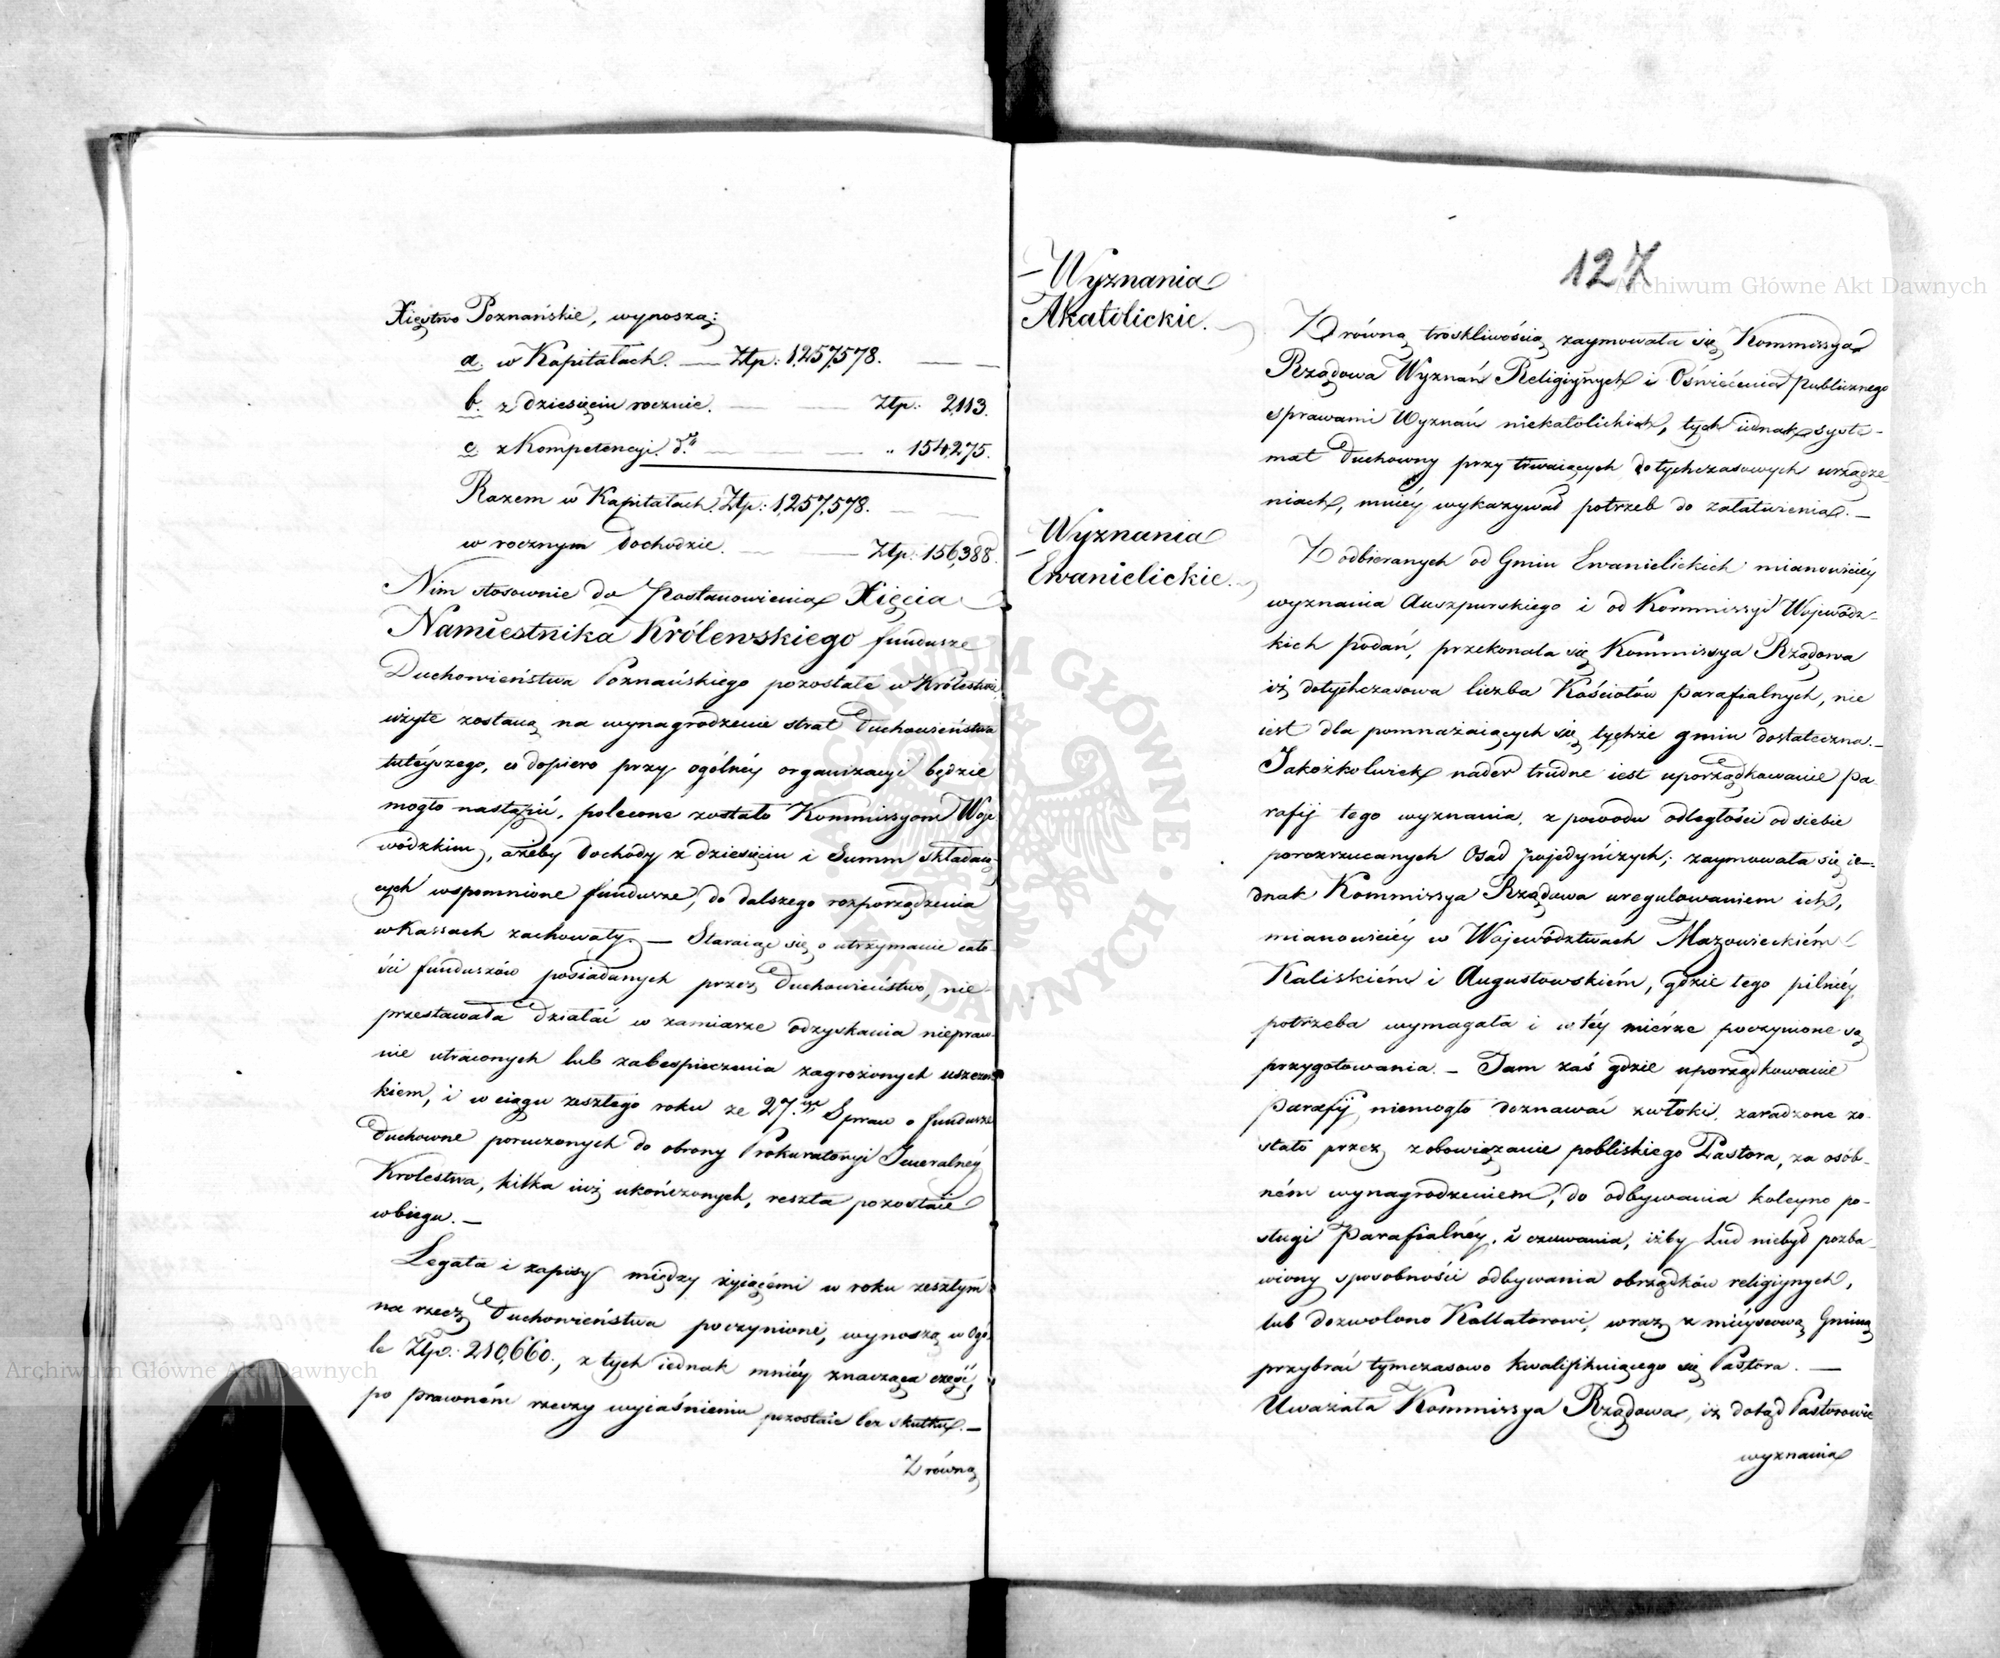 Xięstwo Poznańskie, wynoszą:
a. w Kapitałach. — Złp: 1,257,578. — —
b. z dziesięcin rocznie. — — Złp: 2,113.
c. z Kompetencyi dto — — — „ 154,275.
Razem w Kapitałach Złp: 1,257,578. — —
w rocznym dochodzie. — — Złp: 156,388.
Nim stosownie do Postanowienia Xięcia
Namiestnika Królewskiego fundusze
Duchowieństwa Poznańskiego pozostałe w Królestwie
użyte zostaną na wynagrodzenie strat Duchowieństwa
tutéyszego, co dopiero przy ogólnéy organizacyi będzie
mogło nastąpić, polecone zostało Kommissyom Woje
wódzkim, ażeby dochody z dziesięcin i Summ składaią
cych wspomnione fundusze, do dalszego rozporządzenia
w Kassach zachowały. — Staraiąc się o utrzymanie cało
ści funduszów posiadanych przez Duchowieństwo, nie
przestawała działać w zamiarze odzyskania niepraw
nie utraconych lub zabespieczenia zagrożonych uszczerb
kiem, i w ciągu zeszłego roku ze 27.m Spraw o fundusze
Duchowne poruczonych do obrony Prokuratoryi Jeneralnéy
Krolestwa, kilka iuż ukończonych, reszta pozostaie
w biegu. —
Legata i zapisy między żyiącémi w roku zeszłym
na rzecz Duchowieństwa poczynione, wynoszą w Ogó
le Złp: 210,660., z tych iednak mniéy znacząca część,
po prawném rzeczy wyiaśnieniu pozostaie bez skutku. —
Z równą
127
Wyznania
Akatolickie.
Z równą troskliwością zaymowała się Kommissya
Rządowa Wyznań Religiynych i Oświécenia Publicznego
sprawami Wyznań niekatolickich, tych iednak syste-
mat Duchowny przy trwaiących dotychczasowych urządze-
niach, mniéy wykazywał potrzeb do załatwienia. —
Wyznania
Ewanielickie.
Z odbieranych od Gmin Ewanielickich mianowiciéy
wyznania Auszpurskiego i od Kommissyi Wojewódz-
kich podań, przekonała się Kommissya Rządowa
iż dotychczasowa liczba Kościołów parafialnych, nie
iest dla pomnażaiących się tychże gmin dostateczna. —
Jakożkolwiek nader trudne iest uporządkowanie pa-
rafij tego wyznania, z powodu odległości od siebie
porozrzucanych Osad pojedyńczych; zaymowała się ie-
dnak Kommissya Rządowa uregulowaniem ich,
mianowiciéy w Województwach Mazowieckiém
Kaliskiém i Augustowskiém, gdzie tego pilniéy
potrzeba wymagała i w téy miérze poczynione są
przygotowania. — Tam zaś gdzie uporządkowanie
Parafij niemogło doznawać zwłoki, zaradzone zo-
stało przez zobowiązanie pobliskiego Pastora, za osób-
ném wynagrodzeniem, do odbywania koleyno po-
sługi Parafialnéy, i czuwania, iżby Lud niebył pozba-
wiony sposobności odbywania obrządków religiynych,
lub dozwolono Kollatorowi, wraz z miéyscową Gminą
przybrać tymczasowo kwalifikuiącego się Pastora. —
Uważała Kommissya Rządowa, iż dotąd Pastorowie
wyznania
Archiwum Główne Akt Dawnych
Archiwum Główne Akt Dawnych
ARCHIWUM GŁÓWNE AKT DAWNYCH